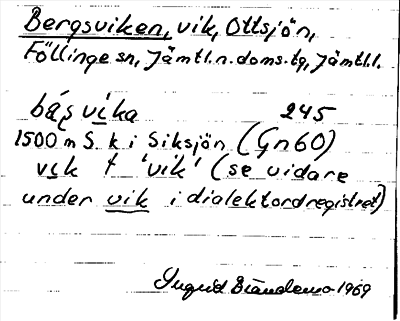 Bergsviken, vik, Ottsjön,
Föllinge sn, Jämtl. n. doms. tg, Jämtl. l.
báʂvika 245
1500 m S. k i Siksjön (Gn60)
vik f 'vik' (se vidare
under vik i dialektordregistret)
Ingrid 1969